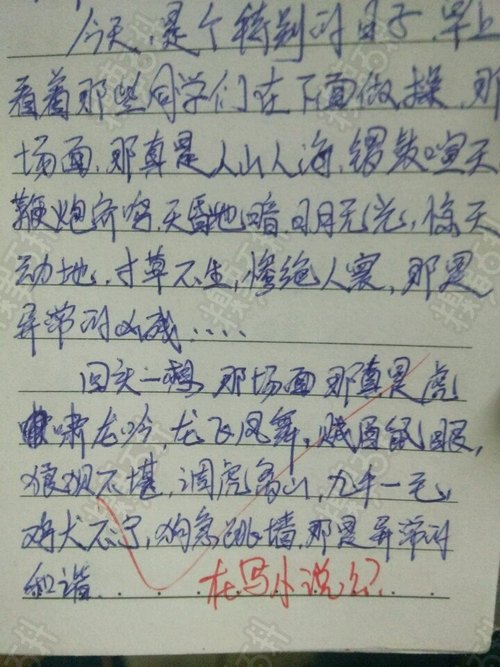 今天，是个特别的日子，早上
看着那些同学们在下面做操，那
场面，那真是人山人海，锣鼓喧天
鞭炮齐鸣，天昏地暗，日月无光，惊天
动地，寸草不生，惨绝人寰，那是
异常的凶残....
回头一想，那场面那真是虎
啸龙吟，龙飞凤舞，贼眉鼠眼，
狼狈不堪，调虎离山，九牛一毛，
鸡犬不宁，狗急跳墙，那是异常的
和谐......
在写小说么？